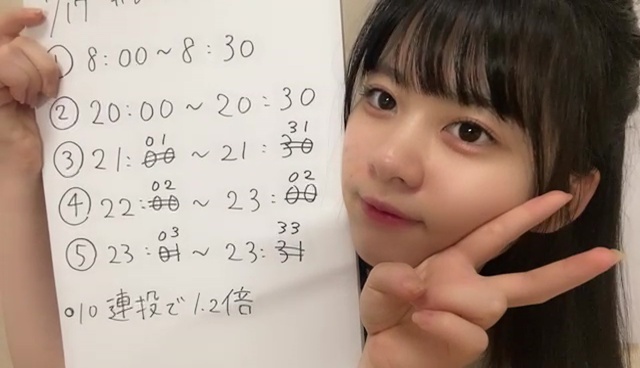 /17
① 8:00～8:30
② 20:00～20:30
01 31
③ 21:00～21:30
02 02
④ 22:00～23:00
03 33
⑤ 23:01～23:31
○10連投で1.2倍